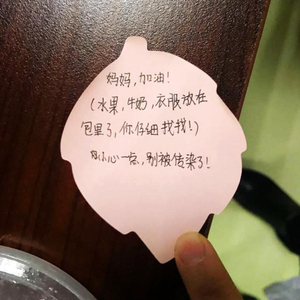 妈妈,加油!
(水果,牛奶,衣服放在
包里了,你仔细找找!)
小心一点,别被传染了!